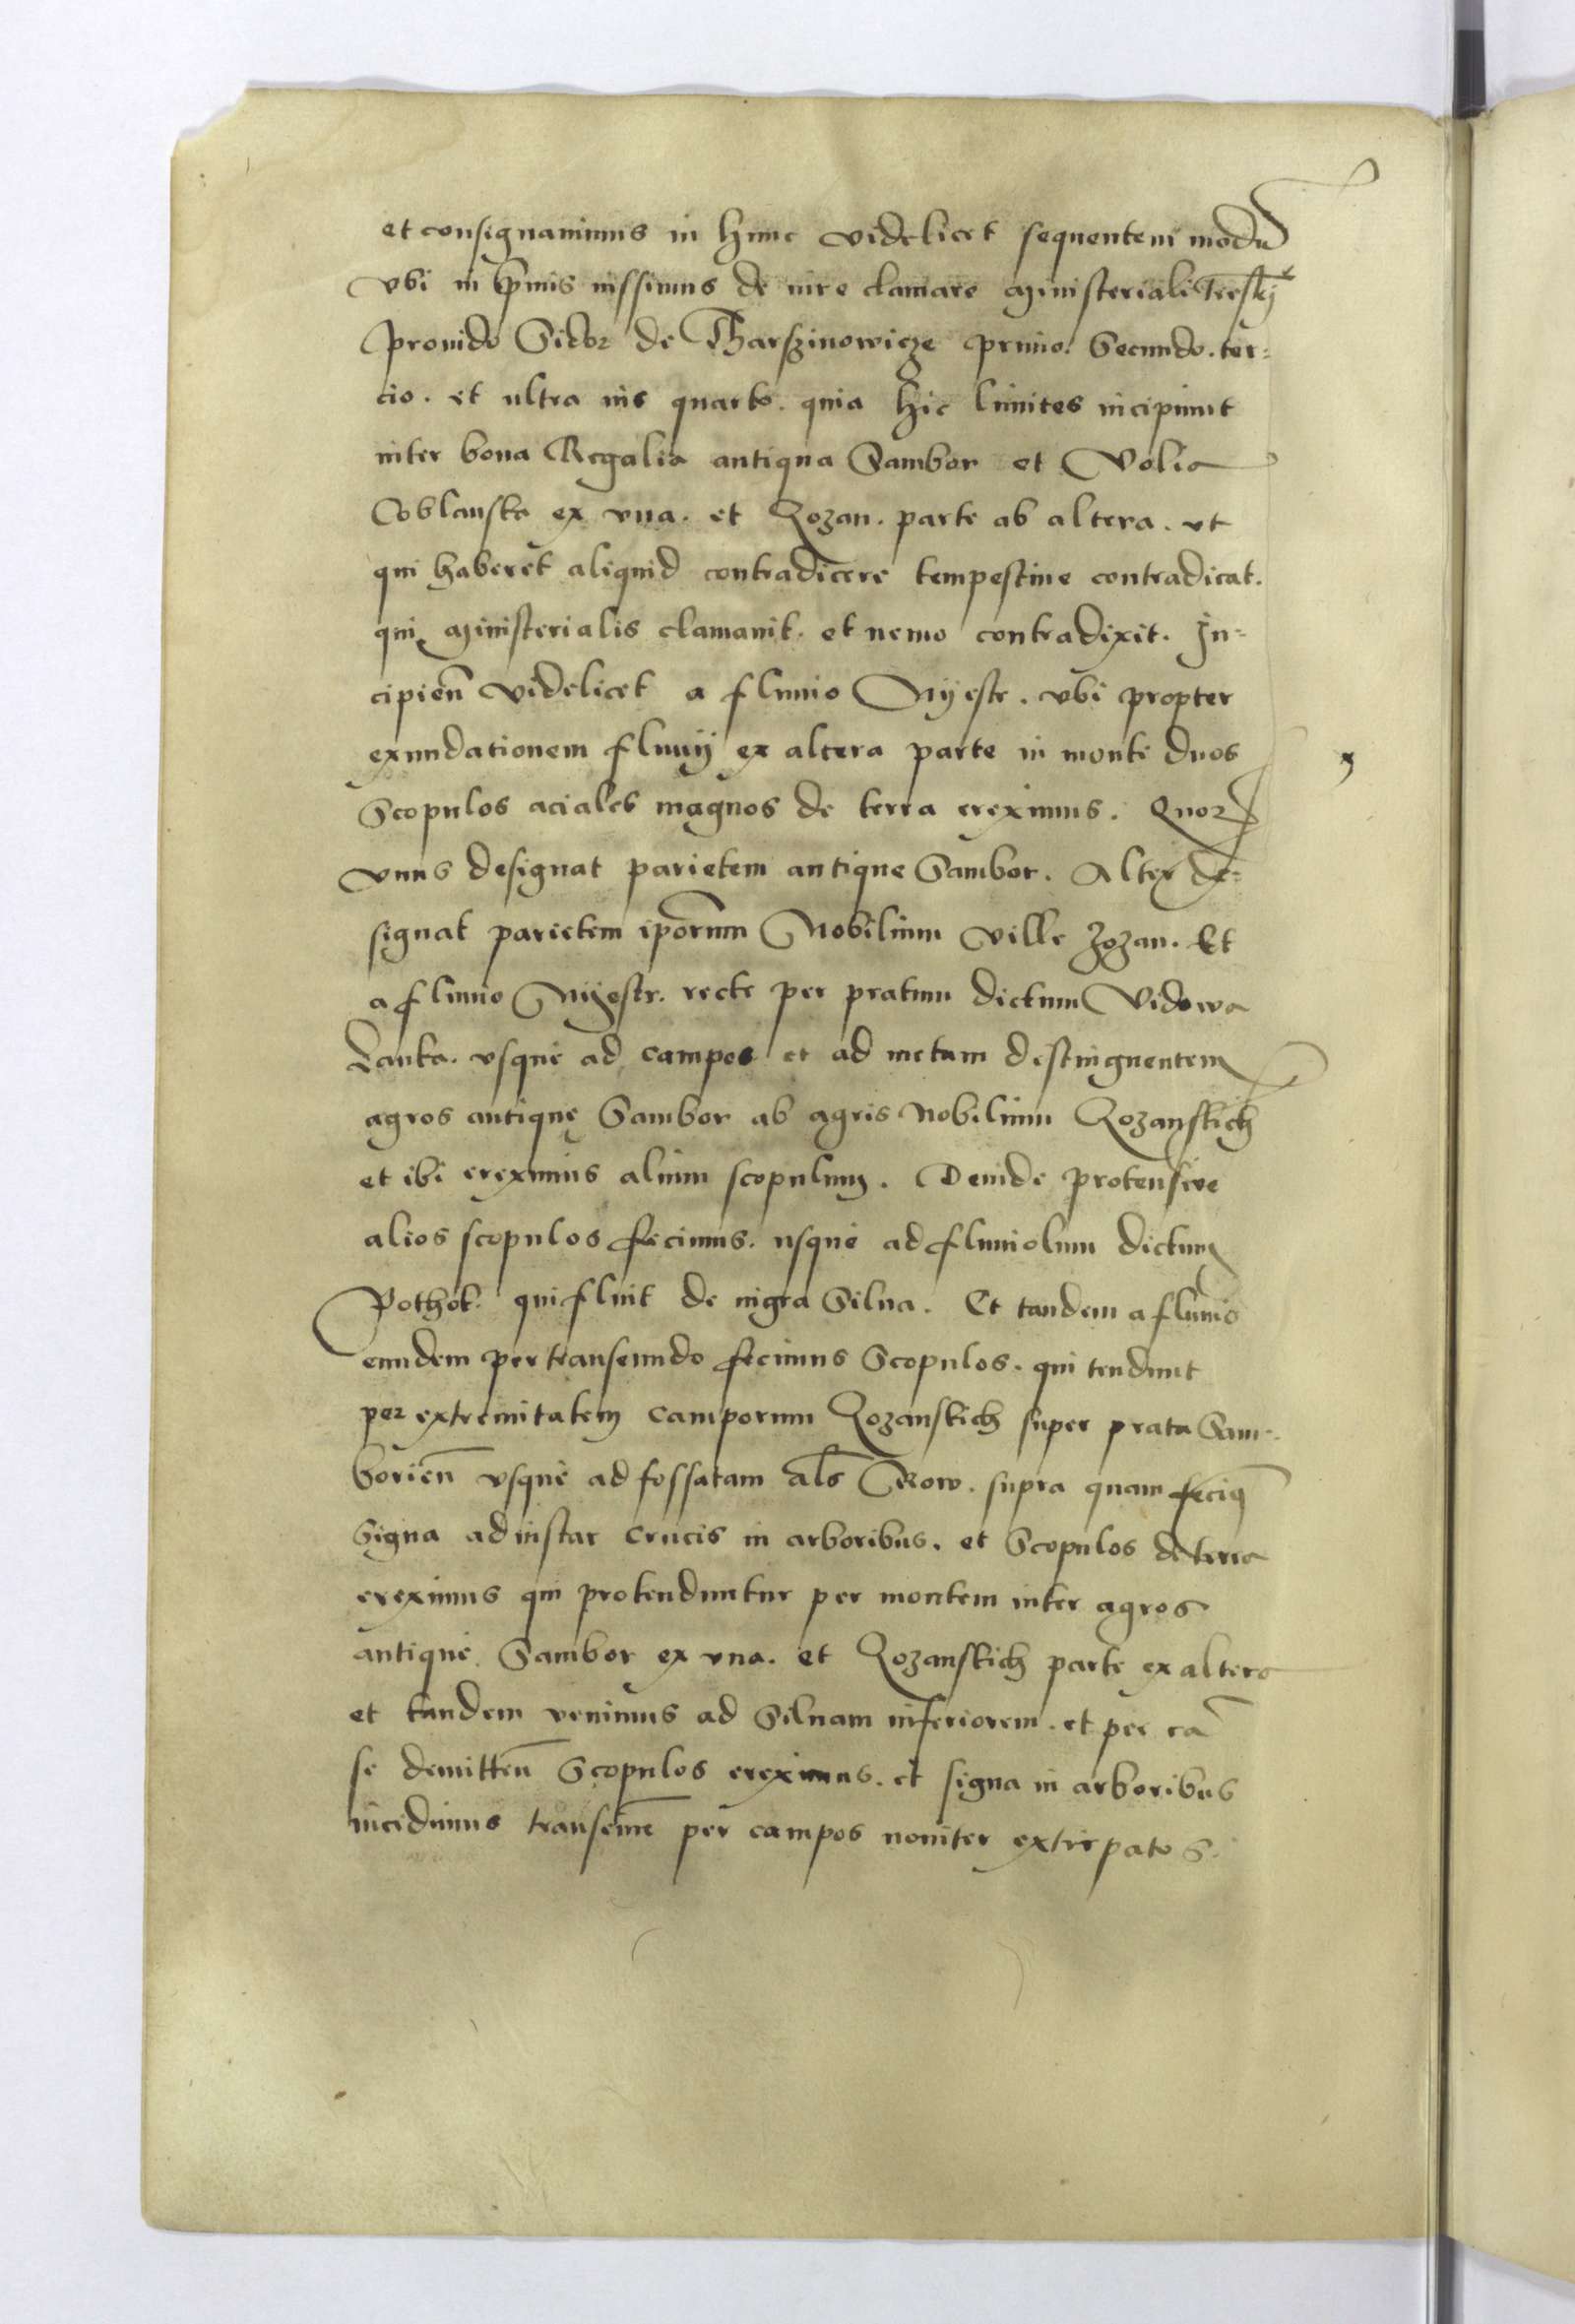 et consignauimus in hunc videlicet sequentem modũ
vbi in p̃mis iussimus de iure clamare Ministeriali
prouido Sidor de Tharszinowicze primo. Secundo. ter=
cio. et ultra ius quarto. quia hic limites incipiunt
inter bona Regalia antiqua Sambor et Volia
Coblanska ex vna. et Rozan. parte ab altera. vt
qui haberet aliquid contradicere tempestiue contradicat.
qui Ministerialis clamauit. et nemo contradixit. In=
cipieñ videlicet a fluuio Nyestr. vbi propter
exundationem fluuij ex altera parte in monte duos
Scopulos aciales magnos de terra ereximus. Quor
vnus designat parietem antique Sambor. Alter de=
signat parietem ip̃orum Nobilium ville Rozan. Et
a fluuio Nyestr. recte per pratum dictum Vidowa
Lanka. vsque ad campos et ad metam destinguentem
agros antique Sambor ab agris Nobilium Rozanskich
et ibi ereximus alium scopulum. Deinde protensiue
alios scopulos fecimus. usque ad fluuiolum dictum
Pothok. qui fluit de nigra Silua. Et tandem a fluuio
eundem pertranseundo fecimus Scopulos. qui tendunt
per extremitatem camporum Rozanskich super prata Sam=
borieñ vsque ad fossatam al̃s Row. supra quam feciꝯ
Signa ad instar crucis in arboribus. et Scopulos de terra
ereximus qui protenduntur per montem inter agros
antique Sambor ex vna. et Rozanskich parte ex altera
et tandem venimus ad Siluam inferiorem. et per eã
se demitteñ Scopulos ereximus. et signa in arboribus
incidimus transeun̄ per campos nouiter extirpatos.